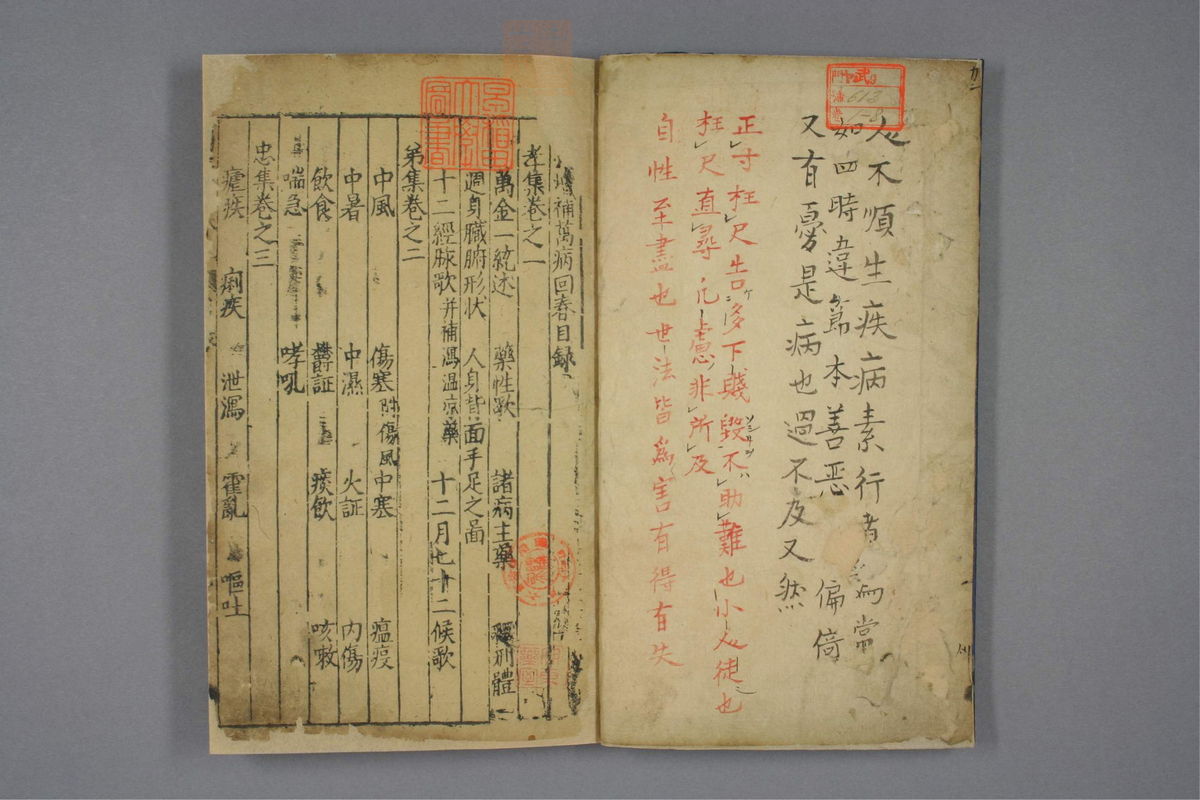 人不順生疾病素行者為常
如四時違節本善惡 偏倚
又有憂是病也過不及又然
正寸枉尺告多下賤毀不助難也小人徒也
枉尺直尋凡慮非所及
自性至盡也世法皆為害有得有失
613
1-8
增補萬病回春目録
孝集卷之一
萬金一統述 藥性歌 諸病主藥 體
週身臟腑形状 人身背面手足之圖
十二經脉歌并補瀉温凉藥 十二月七十二候歌
弟集卷之二
中風 傷寒附傷風 中寒 瘟疫
中暑 中濕 火証 内傷
飲食 欝証 痰飲 咳嗽
喘急 哮吼
忠集卷之三
瘧疾 痢疾 泄瀉 霍亂 嘔吐